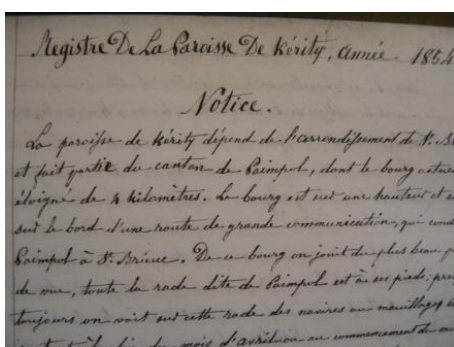 Registre De La Paroisse De Kérity, Année 1854
Notice.
La paroisse de Kérity dépend de l'arrondissement de St. Br
et fait partie du canton de Paimpol, dont le bourg est
éloigné de 4 kilomètres. Le bourg est sur une hauteur et
sur le bord d'une route de grande communication, qui cond
Paimpol à St. Brieuc. De ce bourg on jouit du plus beau p
de vue, toute la rade dite de Paimpol est à ses pieds; pres
toujours on voit sur cette rade des navires au mouillage
à la fin du mois d'avril ou au commencement de